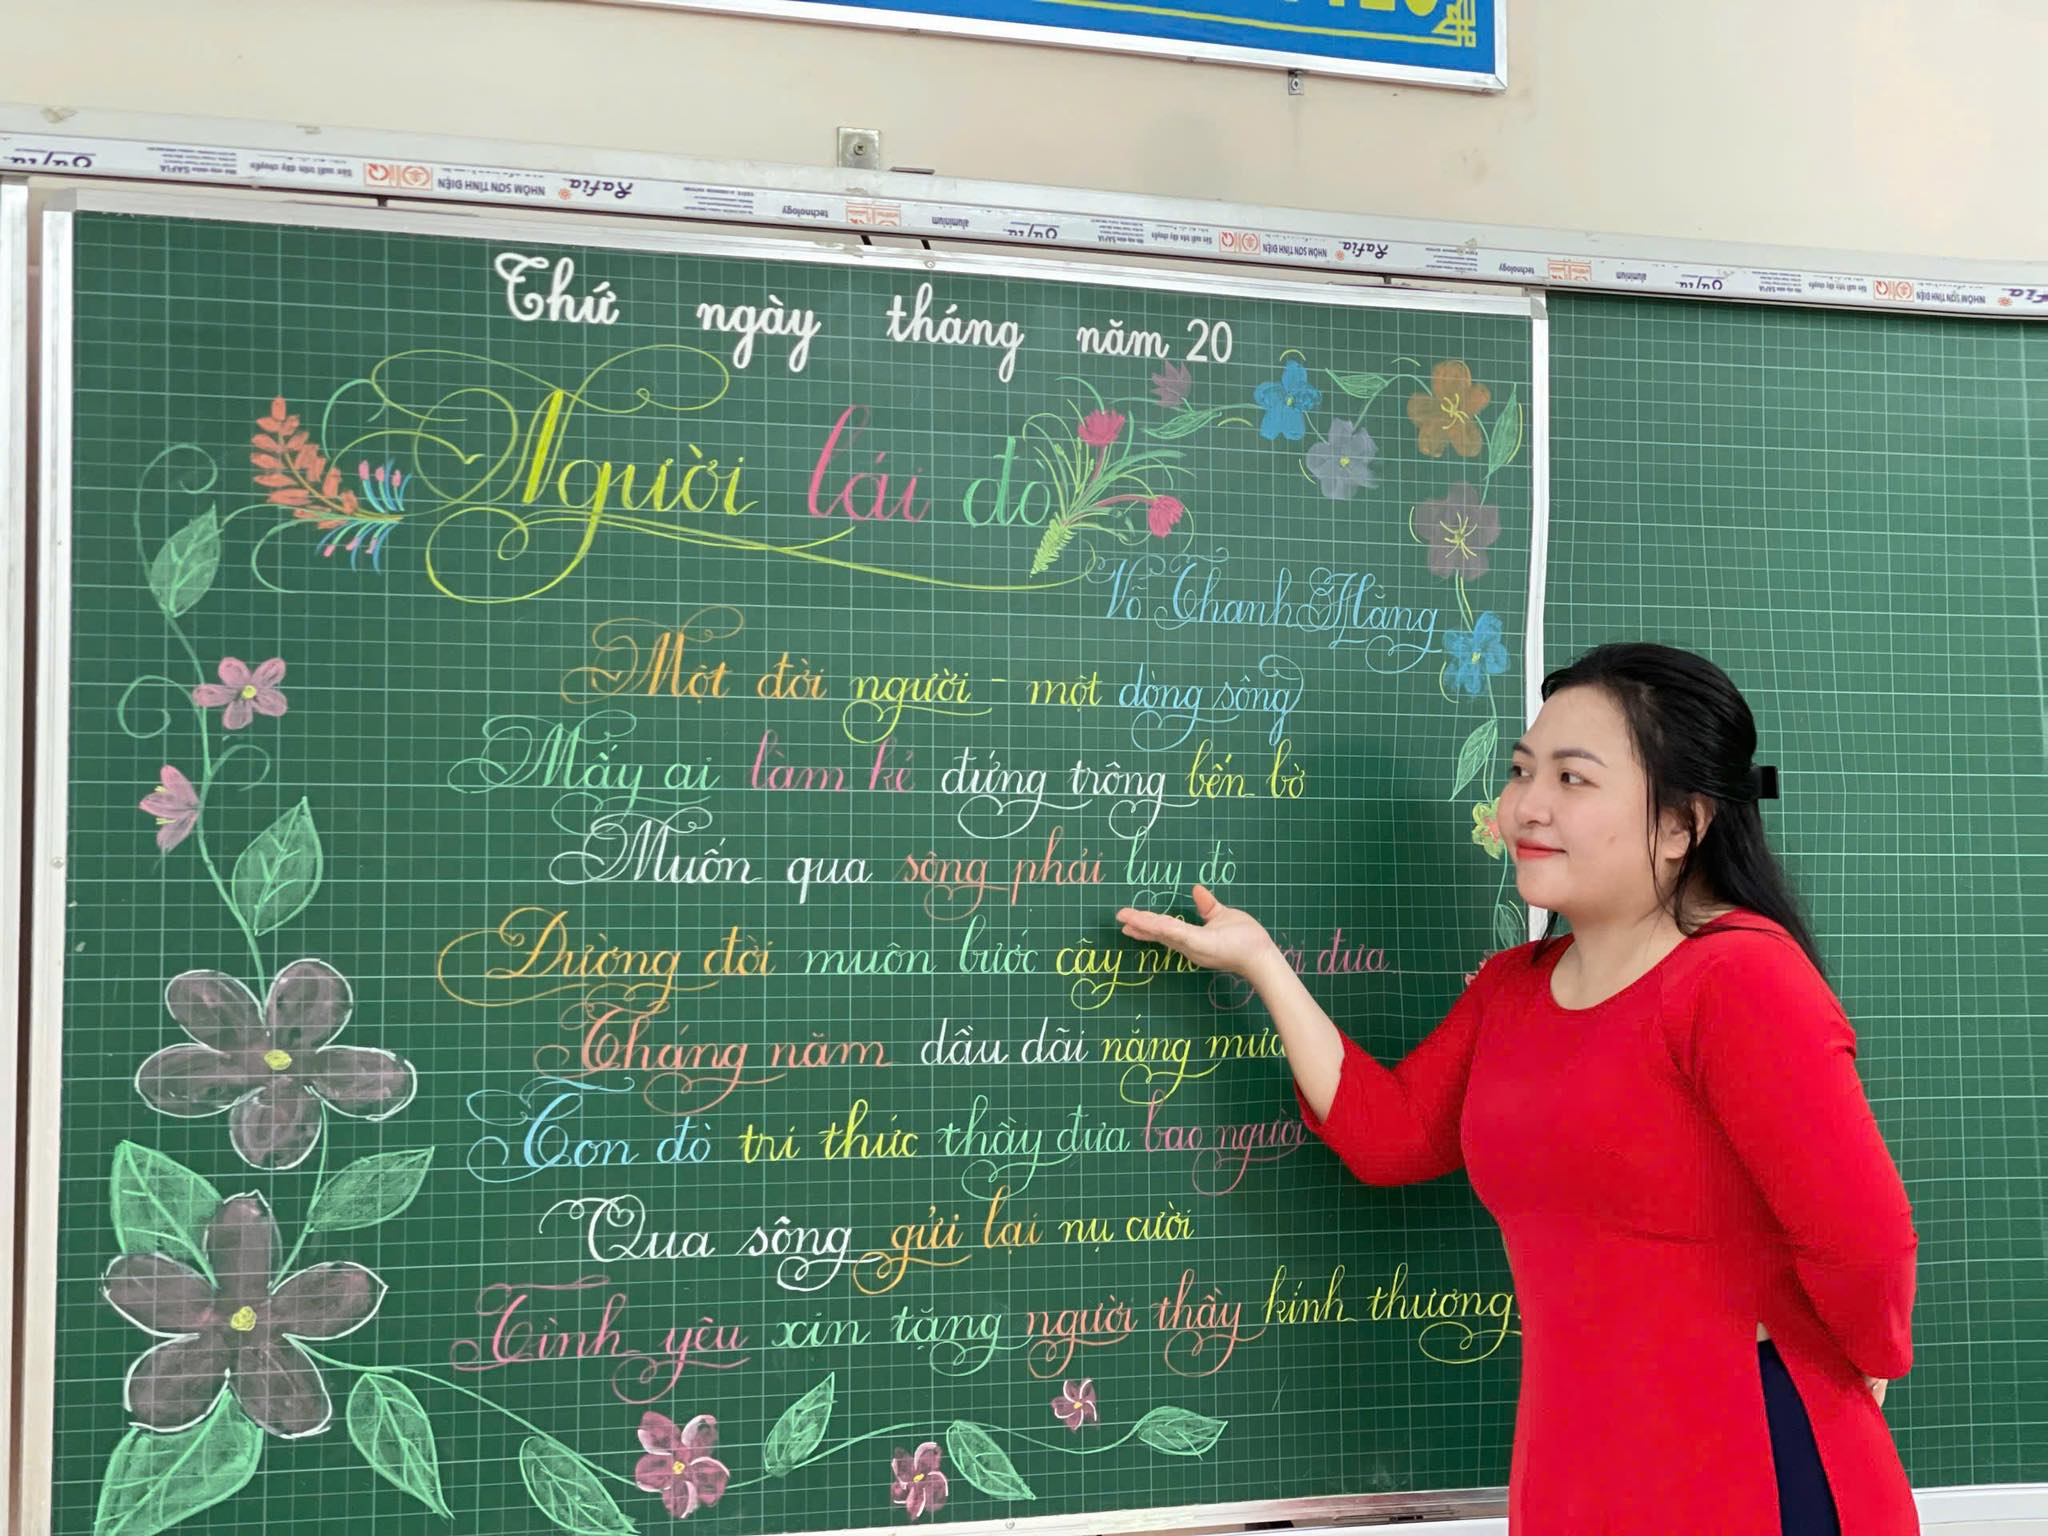 NHÔM SƠN TĨNH ĐIỆN Rafia technology aluminium NHÔM SƠN TĨNH ĐIỆN Rafia technology aluminium NHÔM
Thứ ngày tháng năm 20
Người lái đò
Võ Thanh Hằng
Một đời người - một dòng sông
Mấy ai làm kẻ đứng trông bến bờ
Muốn qua sông phải lụy đò
Đường đời muôn bước cậy đưa
Tháng năm dầu dãi nắng mưa
Con đò trí thức thầy đưa bao người
Qua sông gửi lại nụ cười
Tình yêu xin tặng người thầy kính thương.